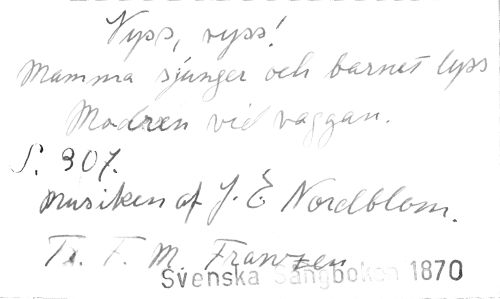 Vyss, vyss!
Mamma sjunger och barnet lyss
Modren vid vaggan.
S. 307.
Musiken af J. E. Nordblom.
Tx. F. M. Franzen
Svenska Sångboken 1870